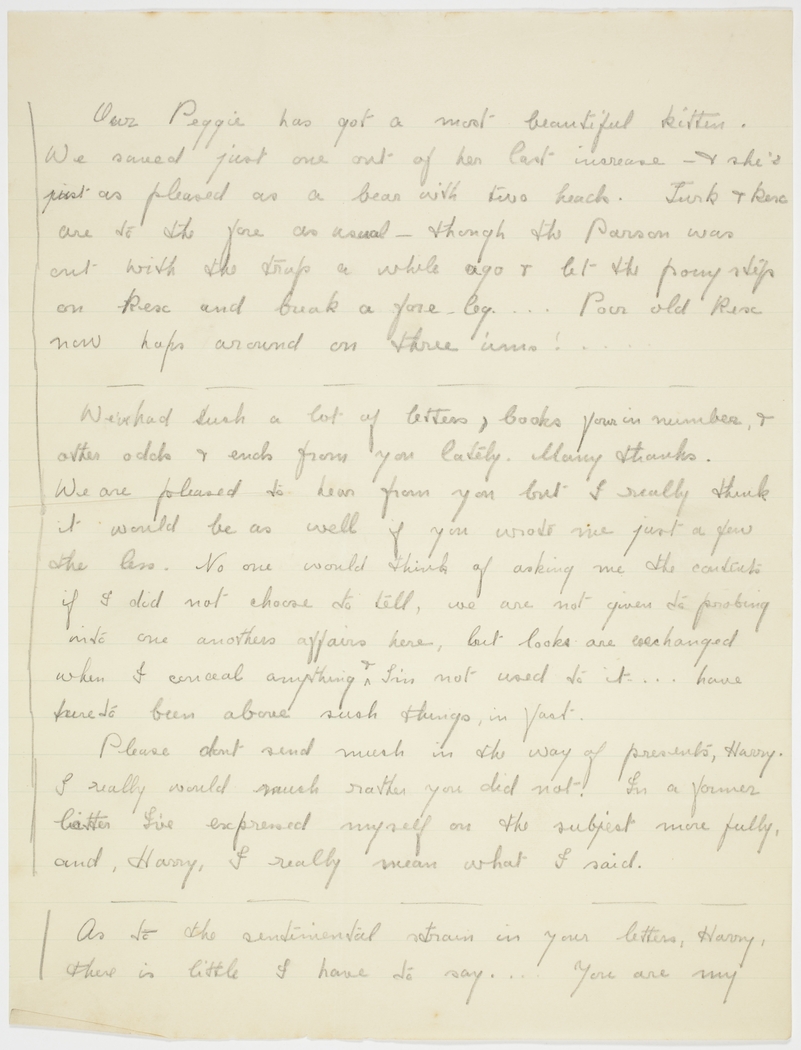 Our Peggie has got a most beautiful kitten.
We saved just one out of her last increase — & she's
just as pleased as a bear with two heads. Turk & Rex
are to the fore as usual — though the Parson was
out with the trap a while ago & let the pony step
on Rex and break a fore-leg.... Poor old Rex
now hops around on three 'uns! .....
We've had such a lot of letters, books four in number, &
other odds & ends from you lately. Many thanks.
We are pleased to hear from you but I really think
it would be as well if you wrote me just a few
the less. No one would think of asking me the contents
if I did not choose to tell, we are not given to probing
into one anothers affairs here, but looks are exchanged
when I conceal anything & I'm not used to it.... have
hereto been above such things, in fact.
Please dont send much in the way of presents, Harry.
I really would much rather you did not! In a former
letter I've expressed myself on the subject more fully,
and, Harry, I really mean what I said.
As to the sentimental strain in your letters, Harry,
there is little I have to say.... You are my